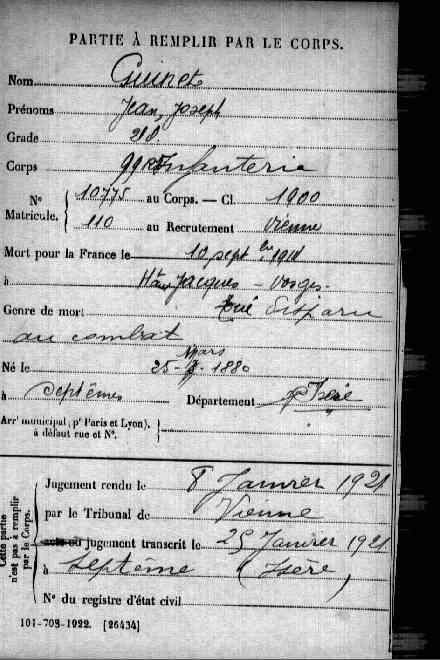 PARTIE À REMPLIR PAR LE CORPS.
Nom Guinet
Prénoms Jean, Joseph
Grade
Corps 99 RInfanterie
N° 10775 au Corps. — Cl. 1900
Matricule. 110 au Recrutement Vienne
Mort pour la France le 10 sept bre 1914
à Htes Jacques - Vosges -
Genre de mort tué Disparu
au combat
Né le 25 Mars 1880
à Septèmes Département Isère
Arrt municipal (pr Paris et Lyon),
à défaut rue et N°.
Cette partie
n'est pas à remplir
par le Corps.
Jugement rendu le 8 Janvier 1921
par le Tribunal de Vienne
jugement transcrit le 25 Janvier 1921
à Septème (Isère)
N° du registre d'état civil
101-708-1922. [26434]